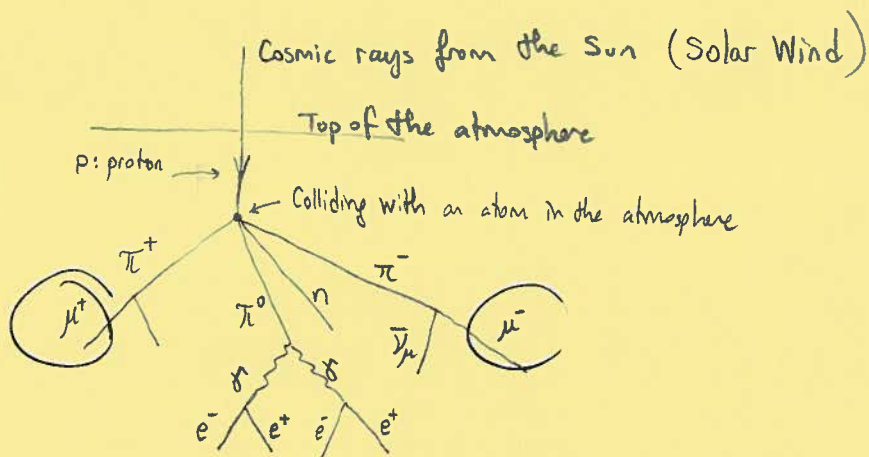 Cosmic rays from the Sun (Solar Wind)
Top of the atmosphere
p: proton
Colliding with an atom in the atmosphere
π⁺
π⁻
μ⁺
π⁰
n
ν̄μ
μ⁻
γ γ
e⁻ e⁺ e⁻ e⁺